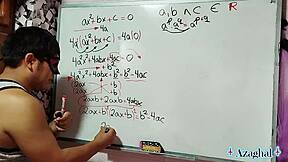 ax²+bx+c=0
4a
4a(ax²+bx+c)=4a(0)
4a²x²+4abx+4ac=0
4a²x²+4abx+b²=b²-4ac
2ax +b
2ax +b
2axb+2axb=4abx
(2ax+b)(2ax+b)=b²-4ac
a,b ∧ c ∈ R
Azaghal